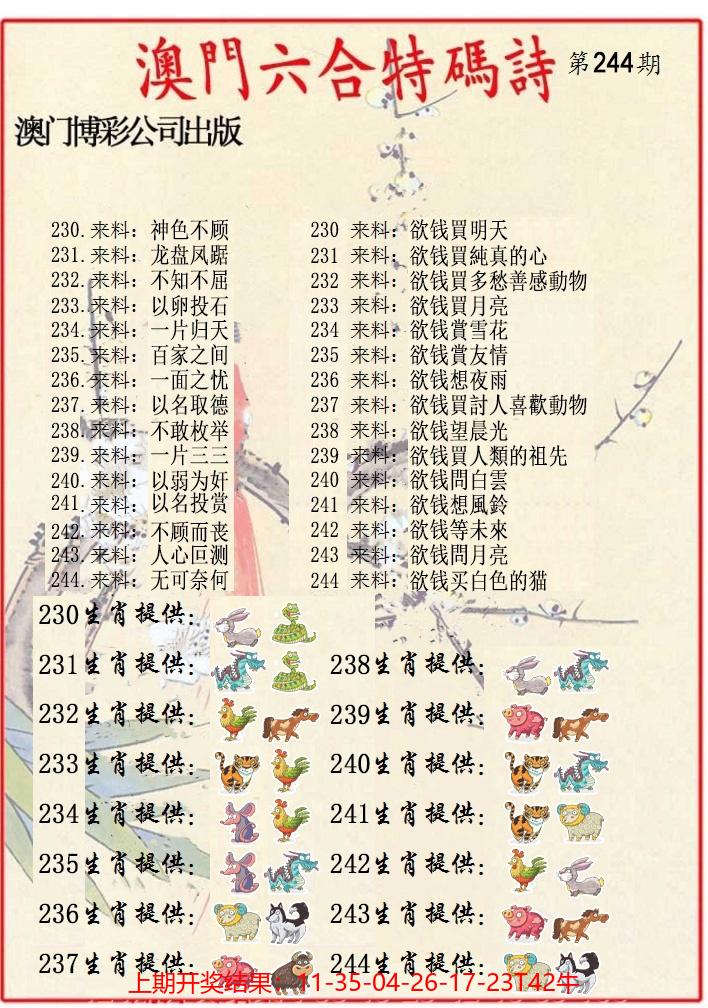 澳門六合特碼詩 第244期
澳门博彩公司出版
230.来料：神色不顾 230 来料：欲钱買明天
231.来料：龙盘凤踞 231 来料：欲钱買純真的心
232.来料：不知不屈 232 来料：欲钱買多愁善感動物
233.来料：以卵投石 233 来料：欲钱買月亮
234.来料：一片归天 234 来料：欲钱賞雪花
235.来料：百家之间 235 来料：欲钱賞友情
236.来料：一面之忧 236 来料：欲钱想夜雨
237.来料：以名取德 237 来料：欲钱買討人喜歡動物
238.来料：不敢枚举 238 来料：欲钱望晨光
239.来料：一片三三 239 来料：欲钱買人類的祖先
240.来料：以弱为奸 240 来料：欲钱問白雲
241.来料：以名投赏 241 来料：欲钱想風鈴
242.来料：不顾而丧 242 来料：欲钱等未來
243.来料：人心叵测 243 来料：欲钱問月亮
244.来料：无可奈何 244 来料：欲钱买白色的猫
230生肖提供：
231生肖提供： 238生肖提供：
232生肖提供： 239生肖提供：
233生肖提供： 240生肖提供：
234生肖提供： 241生肖提供：
235生肖提供： 242生肖提供：
236生肖提供： 243生肖提供：
237生肖提供： 244生肖提供：
上期开奖结果：11-35-04-26-17-23T42牛